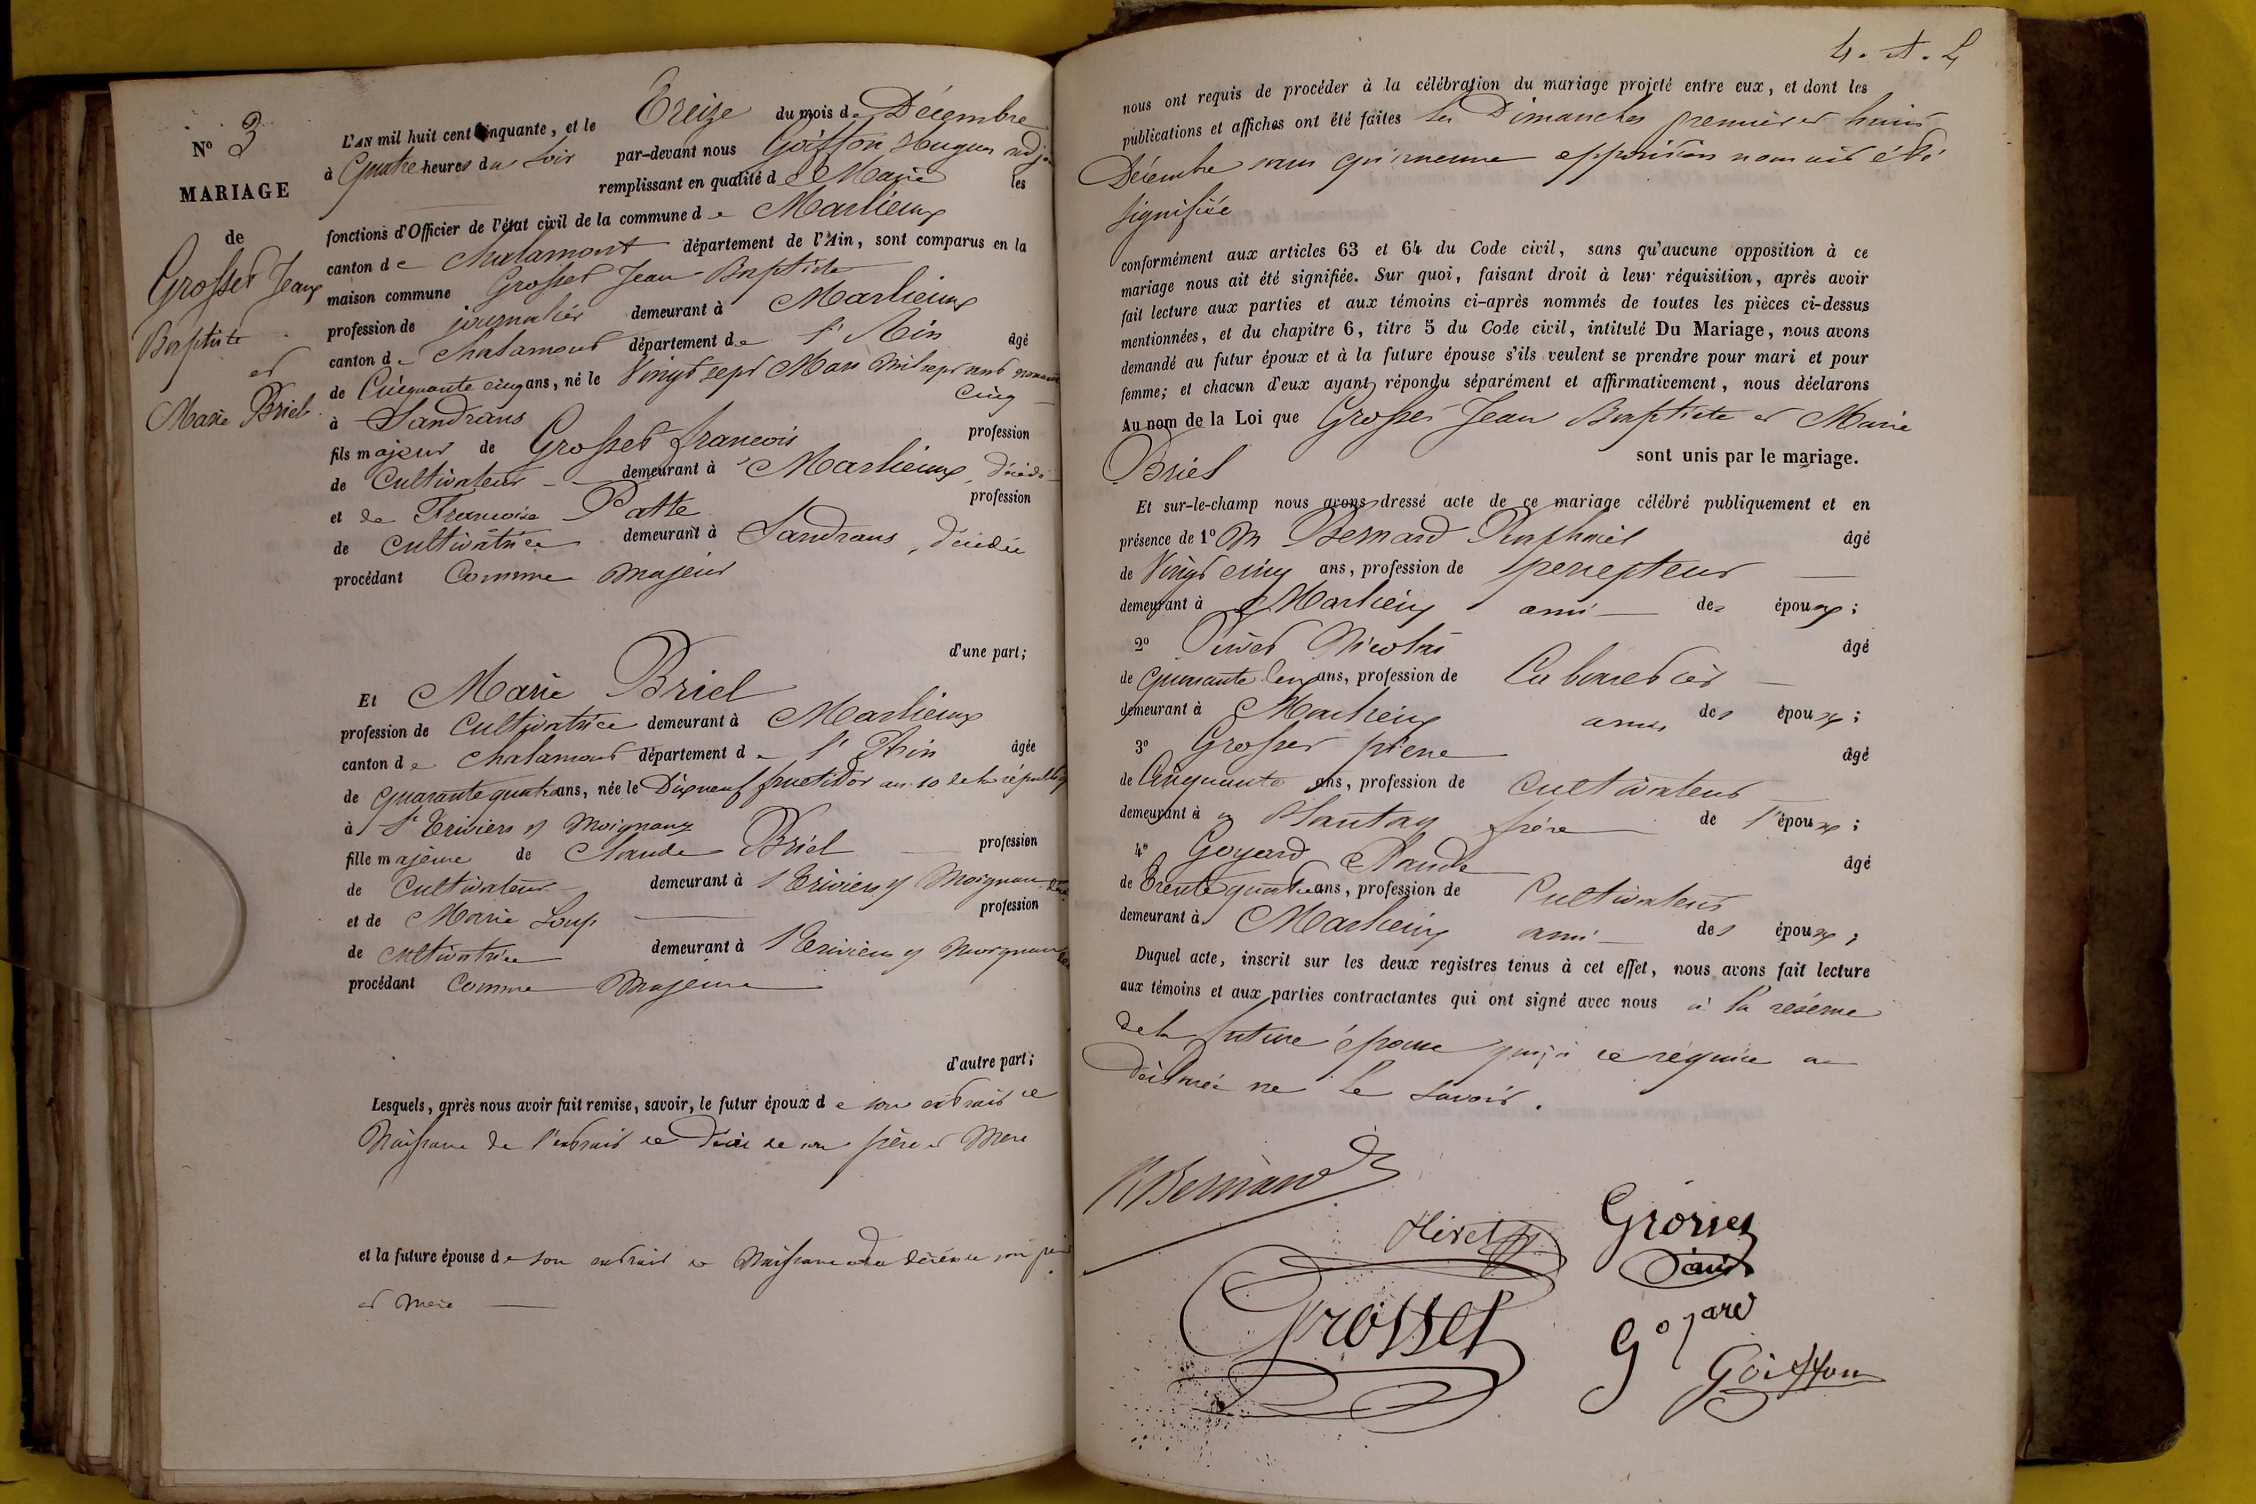 N° 3
MARIAGE
de
Grosset Jean
Baptiste
et
Marie Briel
L'AN mil huit cent cinquante, et le Treize du mois de Décembre
à Quatre heures du Soir par-devant nous Goiffon Hugues adj
remplissant en qualité de Maire les
fonctions d'Officier de l'état civil de la commune de Marlieux
canton de Chalamont département de l'Ain, sont comparus en la
maison commune Grosset Jean-Baptiste
profession de journalier demeurant à Marlieux
canton de Chalamont département de l'Ain âgé
de Cinquante cinq ans, né le Vingt sept Mars Mil sept cent
cinq
à Sandrans
fils majeur de Grosset francois profession
de Cultivateur demeurant à Marlieux, décédé
et de Francoise Patte profession
de cultivatrice demeurant à Sandrans, décédée
procédant Comme Majeur
d'une part;
Et Marie Briel
profession de Cultivatrice demeurant à Marlieux
canton de Chalamont département de l'Ain âgée
de quarante quatre ans, née le Dix neuf fructidor an 10 de la républiq
à St Triviers s/ Moignans
fille majeure de Claude Briel profession
de Cultivateur demeurant à St Triviers s/ Moignan
et de Marie Loup profession
de cultivatrice demeurant à St Triviers s/ Moignan
procédant Comme Majeure
d'autre part;
Lesquels, après nous avoir fait remise, savoir, le futur époux de son extrait de
Naissance de l'extrait de décès de son père et Mere
et la future épouse de son extrait de Naissance décès de son père
et mere
4. A. L
nous ont requis de procéder à la célébration du mariage projeté entre eux, et dont les
publications et affiches ont été faites les Dimanches premier et huit
Décembre sans qu'aucune opposition nous ait été
signifiée
conformément aux articles 63 et 64 du Code civil, sans qu'aucune opposition à ce
mariage nous ait été signifiée. Sur quoi, faisant droit à leur réquisition, après avoir
fait lecture aux parties et aux témoins ci-après nommés de toutes les pièces ci-dessus
mentionnées, et du chapitre 6, titre 5 du Code civil, intitulé Du Mariage, nous avons
demandé au futur époux et à la future épouse s'ils veulent se prendre pour mari et pour
femme; et chacun d'eux ayant répondu séparément et affirmativement, nous déclarons
Au nom de la Loi que Grosset Jean Baptiste et Marie
Briel sont unis par le mariage.
Et sur-le-champ nous avons dressé acte de ce mariage célébré publiquement et en
présence de 1° M Bernard Raphael âgé
de Vingt cinq ans, profession de percepteur
demeurant à Marlieux ami des époux;
2° Nicolas âgé
de quarante ans, profession de Cabaretier
demeurant à Marlieux ami des époux;
3° Grosset pierre âgé
de Cinquante ans, profession de Cultivateur
demeurant à frère de l'époux;
4° Goyard Claude âgé
de Trente quatre ans, profession de Cultivateur
demeurant à Marlieux ami des époux;
Duquel acte, inscrit sur les deux registres tenus à cet effet, nous avons fait lecture
aux témoins et aux parties contractantes qui ont signé avec nous à la réserve
de la future épouse qui, à ce réquise a
déclarée ne le savoir.
RBernard
Grosset
Grosset
Goyard
Goiffon